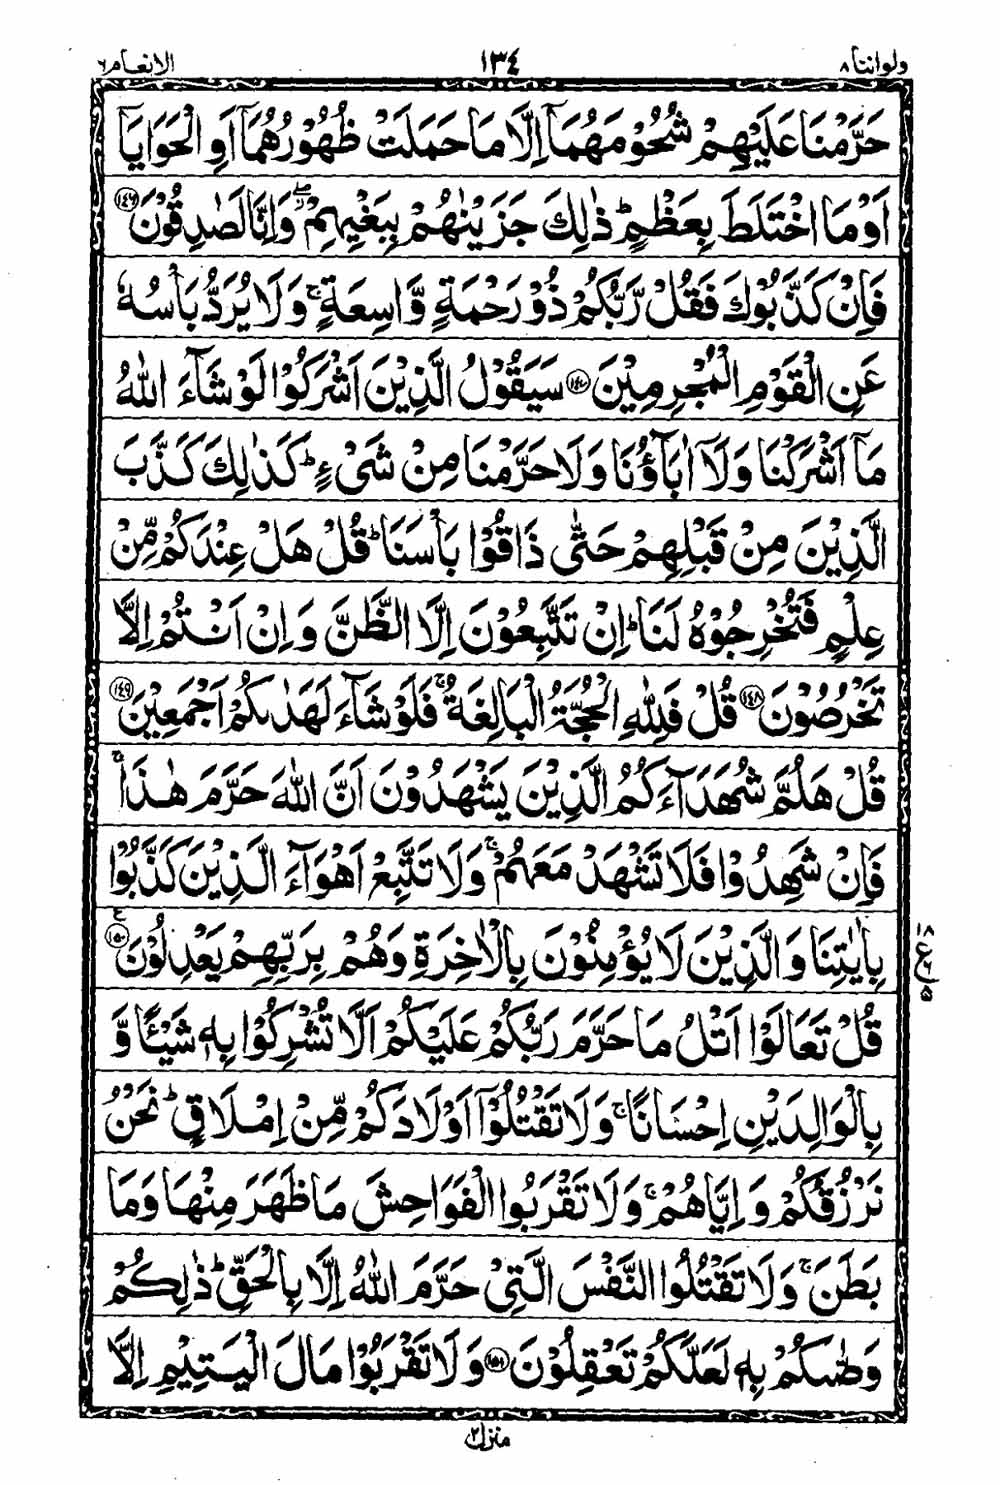 ولواننا ٨ ١٣٤ الانعام ٦
حَرَّمْنَا عَلَيْهِمْ شُحُوْمَهُمَآ اِلَّا مَا حَمَلَتْ ظُهُوْرُهُمَآ اَوِ الْحَوَايَآ
اَوْ مَا اخْتَلَطَ بِعَظْمٍ ؕ ذٰلِكَ جَزَيْنٰهُمْ بِبَغْيِهِمْ ۖ وَاِنَّا لَصٰدِقُوْنَ ﴿١٤٦﴾
فَاِنْ كَذَّبُوْكَ فَقُلْ رَّبُّكُمْ ذُوْ رَحْمَةٍ وَّاسِعَةٍ ۚ وَلَا يُرَدُّ بَاْسُهٗ
عَنِ الْقَوْمِ الْمُجْرِمِيْنَ ﴿١٤٧﴾ سَيَقُوْلُ الَّذِيْنَ اَشْرَكُوْا لَوْ شَآءَ اللّٰهُ
مَآ اَشْرَكْنَا وَلَآ اٰبَآؤُنَا وَلَا حَرَّمْنَا مِنْ شَيْءٍ ؕ كَذٰلِكَ كَذَّبَ
الَّذِيْنَ مِنْ قَبْلِهِمْ حَتّٰى ذَاقُوْا بَاْسَنَا ؕ قُلْ هَلْ عِنْدَكُمْ مِّنْ
عِلْمٍ فَتُخْرِجُوْهُ لَنَا ؕ اِنْ تَتَّبِعُوْنَ اِلَّا الظَّنَّ وَاِنْ اَنْتُمْ اِلَّا
تَخْرُصُوْنَ ﴿١٤٨﴾ قُلْ فَلِلّٰهِ الْحُجَّةُ الْبَالِغَةُ ۚ فَلَوْ شَآءَ لَهَدٰىكُمْ اَجْمَعِيْنَ ﴿١٤٩﴾
قُلْ هَلُمَّ شُهَدَآءَكُمُ الَّذِيْنَ يَشْهَدُوْنَ اَنَّ اللّٰهَ حَرَّمَ هٰذَا ۚ
فَاِنْ شَهِدُوْا فَلَا تَشْهَدْ مَعَهُمْ ۚ وَلَا تَتَّبِعْ اَهْوَآءَ الَّذِيْنَ كَذَّبُوْا
بِاٰيٰتِنَا وَالَّذِيْنَ لَا يُؤْمِنُوْنَ بِالْاٰخِرَةِ وَهُمْ بِرَبِّهِمْ يَعْدِلُوْنَ ﴿١٥٠﴾ ع
قُلْ تَعَالَوْا اَتْلُ مَا حَرَّمَ رَبُّكُمْ عَلَيْكُمْ اَلَّا تُشْرِكُوْا بِهٖ شَيْـًٔا وَّ
بِالْوَالِدَيْنِ اِحْسَانًا ۚ وَلَا تَقْتُلُوْٓا اَوْلَادَكُمْ مِّنْ اِمْلَاقٍ ؕ نَحْنُ
نَرْزُقُكُمْ وَاِيَّاهُمْ ۚ وَلَا تَقْرَبُوا الْفَوَاحِشَ مَا ظَهَرَ مِنْهَا وَمَا
بَطَنَ ۚ وَلَا تَقْتُلُوا النَّفْسَ الَّتِيْ حَرَّمَ اللّٰهُ اِلَّا بِالْحَقِّ ؕ ذٰلِكُمْ
وَصّٰىكُمْ بِهٖ لَعَلَّكُمْ تَعْقِلُوْنَ ﴿١٥١﴾ وَلَا تَقْرَبُوْا مَالَ الْيَتِيْمِ اِلَّا
منزل ٢